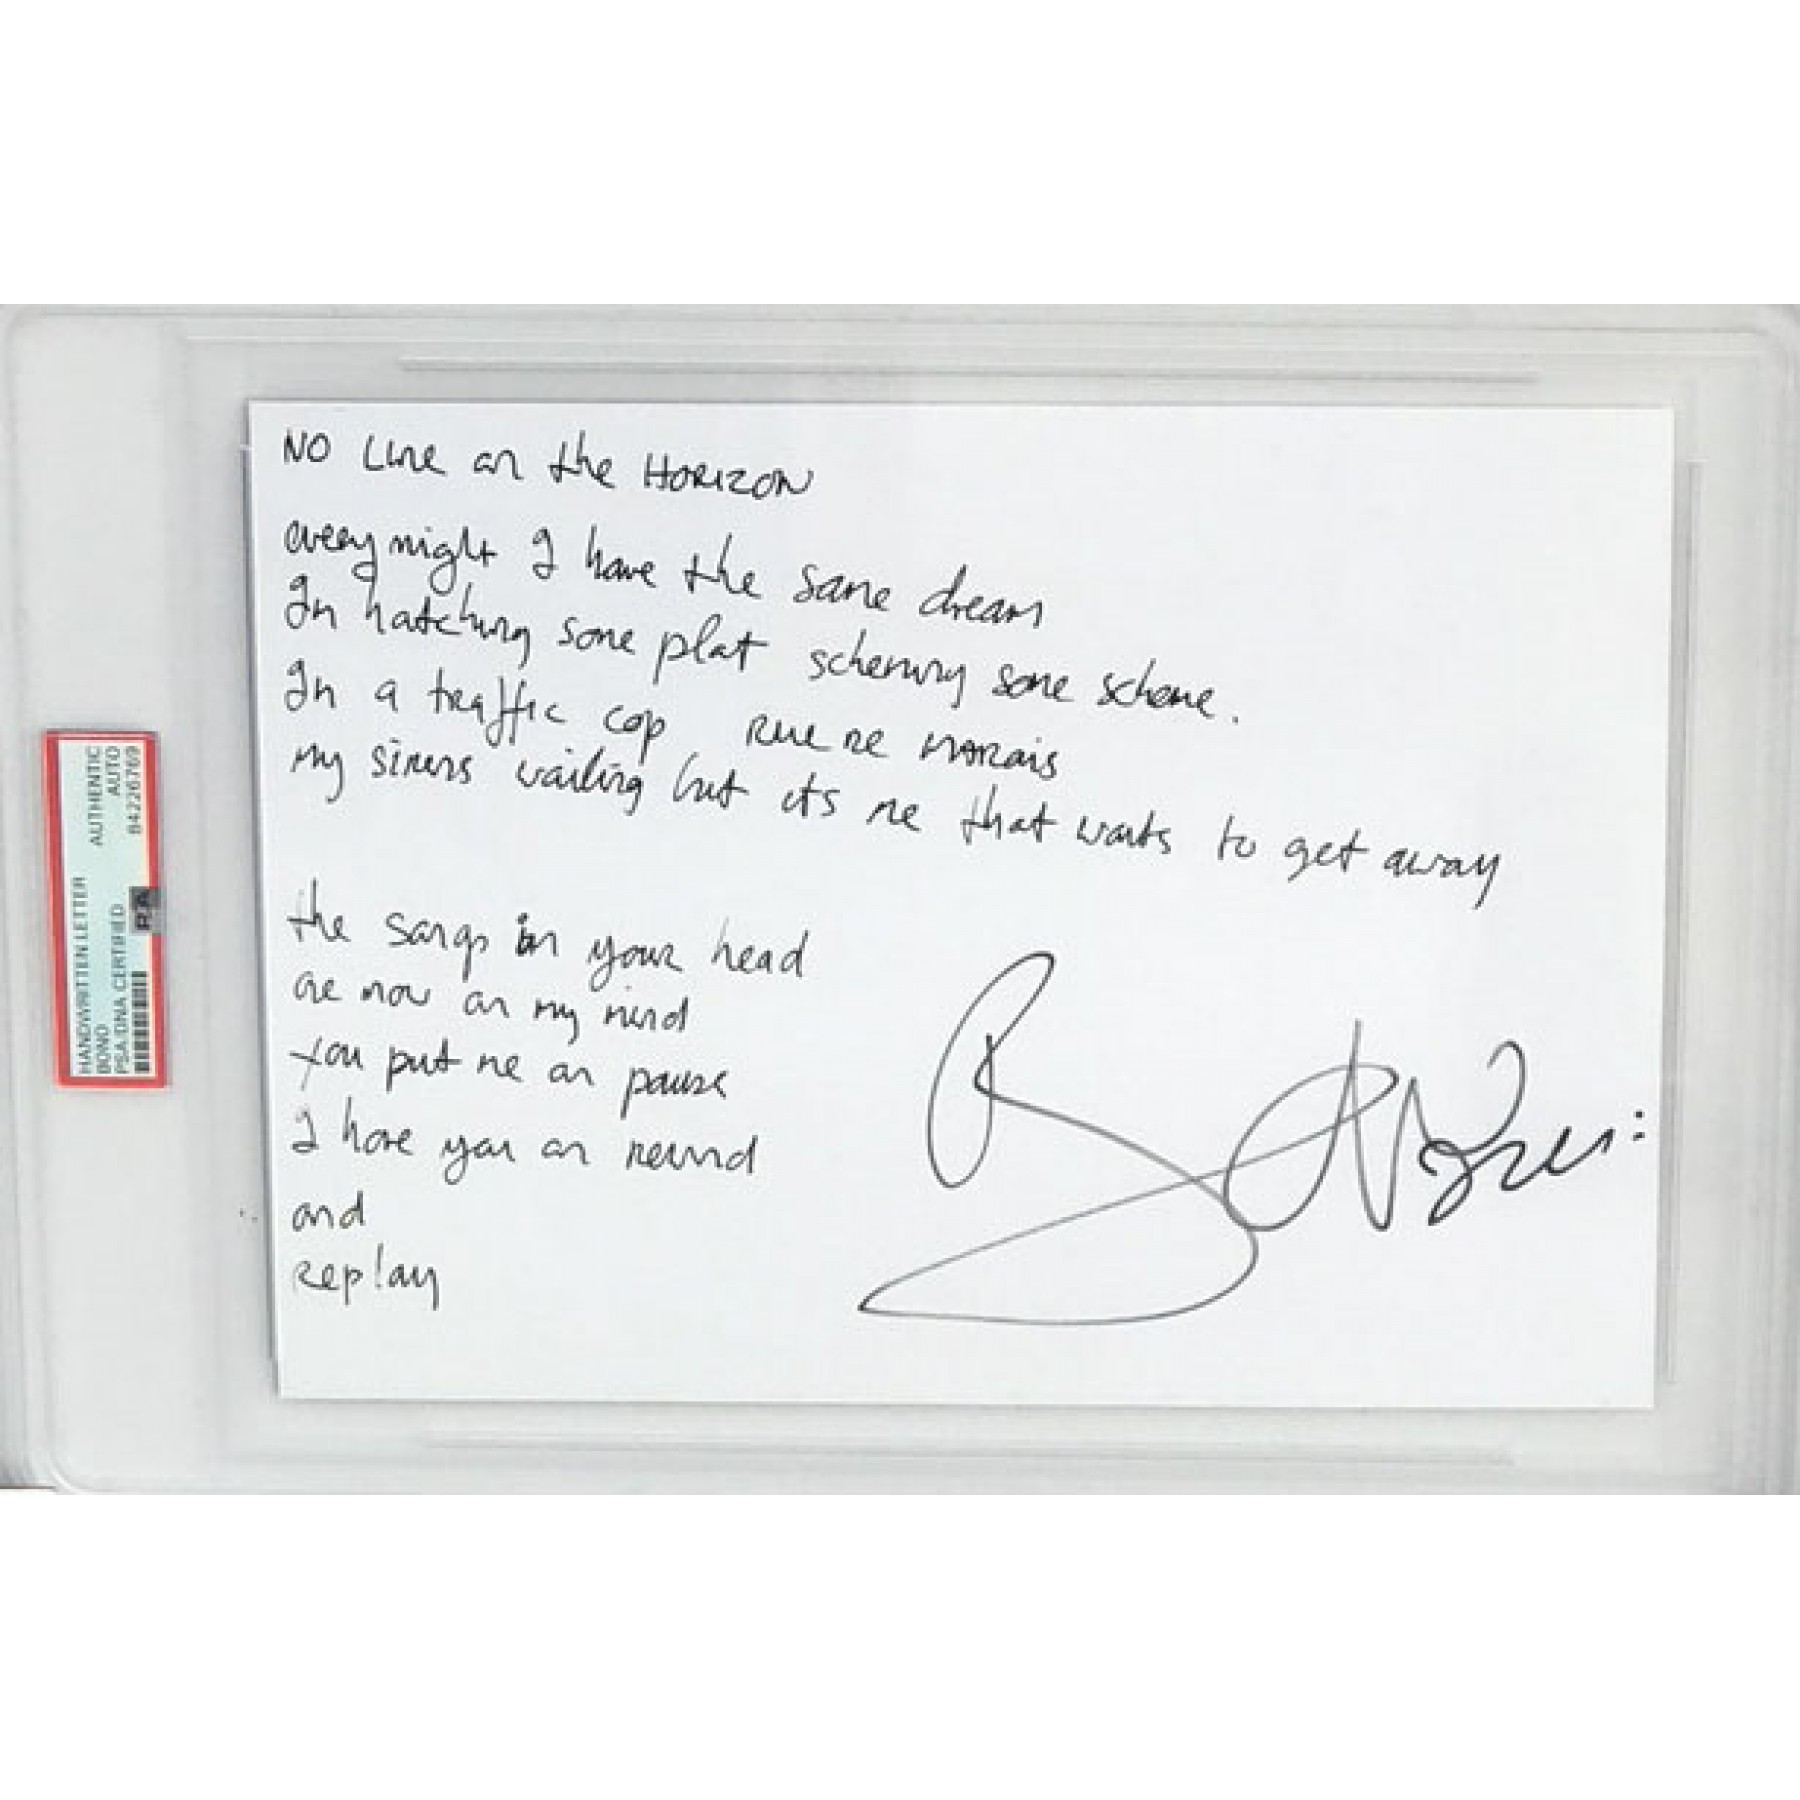 HANDWRITTEN LETTER AUTHENTIC
BONO AUTO
PSA/DNA CERTIFIED 84226769
PSA
NO LINE on the HORIZON
every night I have the same dream
Im hatching some plot scheming some scheme.
Im a traffic cop RUE DE MARAIS
my sirens wailing but its me that wants to get away
the songs in your head
are now on my mind
You put me on pause
I have you on rewind
and
Replay